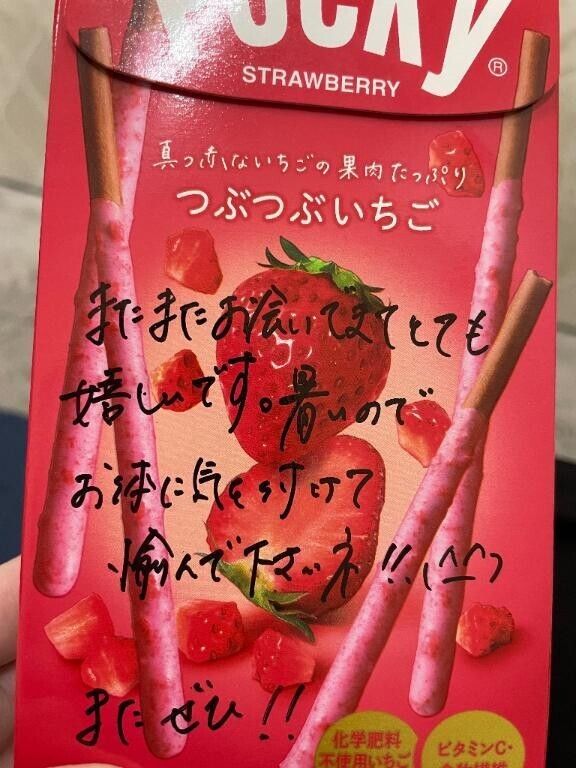 Pocky®
STRAWBERRY
真っ赤ないちごの果肉たっぷり
つぶつぶいちご
またまたお会いできてとても
嬉しいです。暑いので
お体に気を付けて
愉んで下サッネ!!(^^)
またぜひ!!
化学肥料
不使用いちご
ビタミンC・
食物繊維